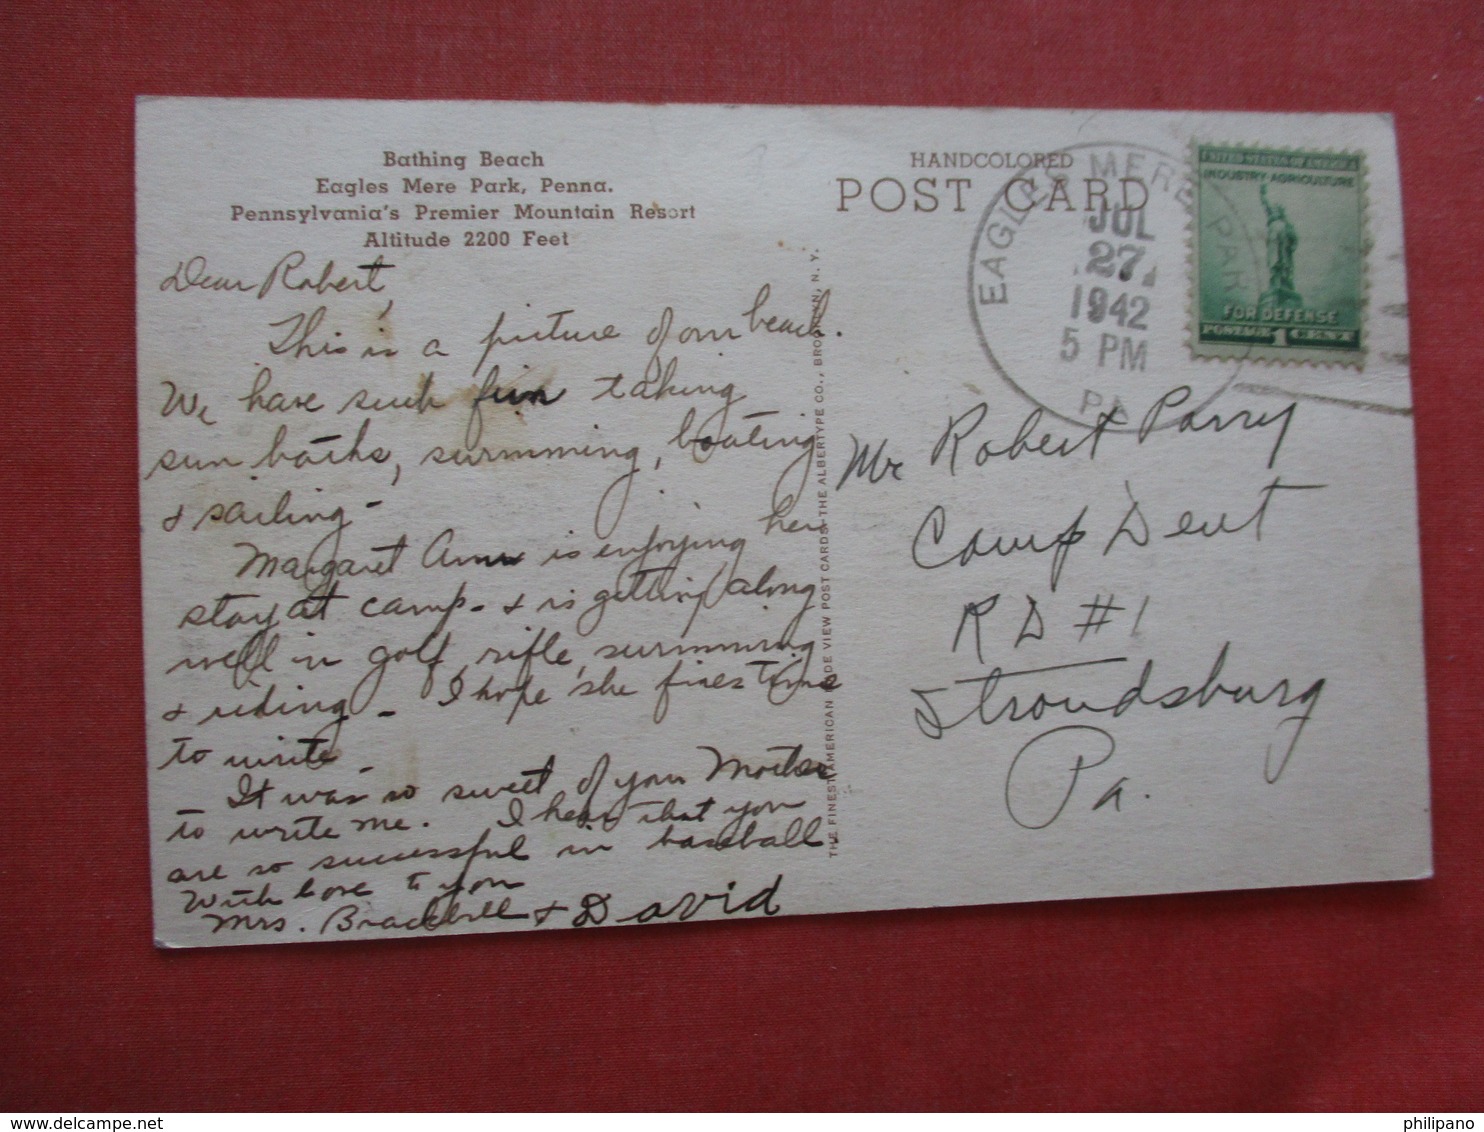 Bathing Beach
Eagles Mere Park, Penna.
Pennsylvania's Premier Mountain Resort
Altitude 2200 Feet
Dear Robert,
This is a picture of our beach.
We have such fun taking
sun baths, swimming, boating
& sailing -
Margaret Ann is enjoying her
stay at camp - & is getting along
well in golf, rifle, swimming
& riding - I hope she finds time
to write -
It was so sweet of your Mother
to write me. I hear that you
are so successful in baseball.
With love to you
Mrs. Brackbill & David
THE FINEST AMERICAN MADE VIEW POST CARDS-THE ALBERTYPE CO., BROOKLYN, N. Y.
HANDCOLORED
POST CARD
EAGLES MERE PARK
JUL
27
1942
5 PM
PA
UNITED STATES OF AMERICA
INDUSTRY-AGRICULTURE
FOR DEFENSE
POSTAGE 1 CENT
Mr Robert Parry
Camp Dent
RD #1
Stroudsburg
Pa.
www.delcampe.net
philipano